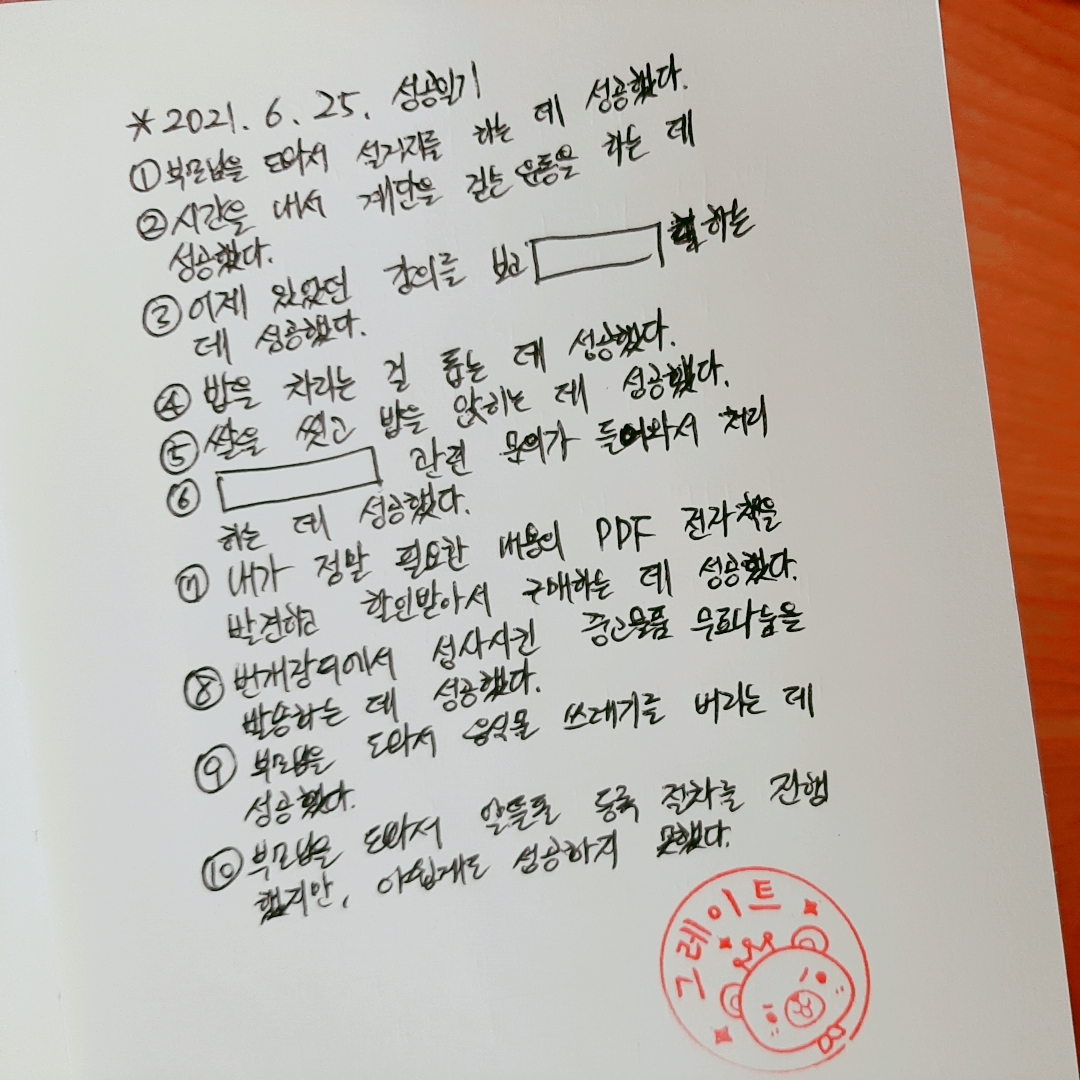 *2021. 6. 25. 성공일기
① 부모님을 도와서 설거지를 하는 데 성공했다.
② 시간을 내서 계단을 걷는 운동을 하는 데
성공했다.
③ 어제 있었던 강의를 보고 하는
데 성공했다.
④ 밥을 차리는 걸 돕는 데 성공했다.
⑤ 쌀을 씻고 밥을 앉히는 데 성공했다.
⑥ 관련 문의가 들어와서 처리
하는 데 성공했다.
⑦ 내가 정말 필요한 내용의 PDF 전자책을
발견하고 확인받아서 구매하는 데 성공했다.
⑧ 번개장터에서 성사시킨 중고물품 무료나눔을
발송하는 데 성공했다.
⑨ 부모님을 도와서 음식물 쓰레기를 버리는 데
성공했다.
⑩ 부모님을 도와서 알뜰폰 등록 절차를 진행
했지만, 아쉽게도 성공하지 못했다.
그레이트